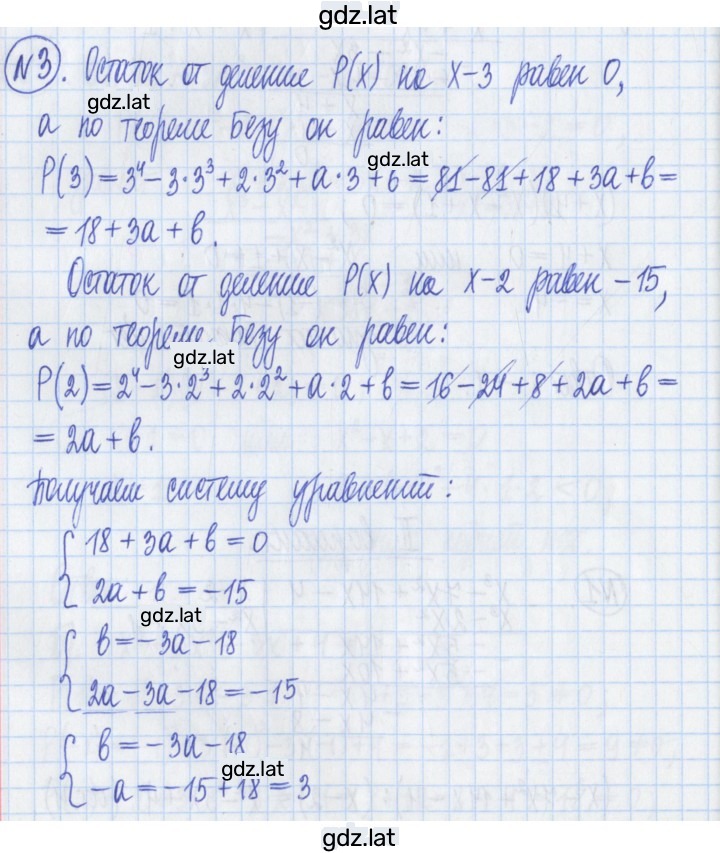 gdz.lat
№3. Остаток от деление P(x) на x-3 равен 0,
gdz.lat
а по теореме Безу он равен:
gdz.lat
P(3)=3⁴-3·3³+2·3²+a·3+b=81-81+18+3a+b=
=18+3a+b.
Остаток от деление P(x) на x-2 равен -15,
а по теореме Безу он равен:
gdz.lat
P(2)=2⁴-3·2³+2·2²+a·2+b=16-24+8+2a+b=
=2a+b.
Получаем систему уравнений:
18+3a+b=0
2a+b=-15
gdz.lat
b=-3a-18
2a-3a-18=-15
b=-3a-18
gdz.lat
-a=-15+18=3
gdz.lat